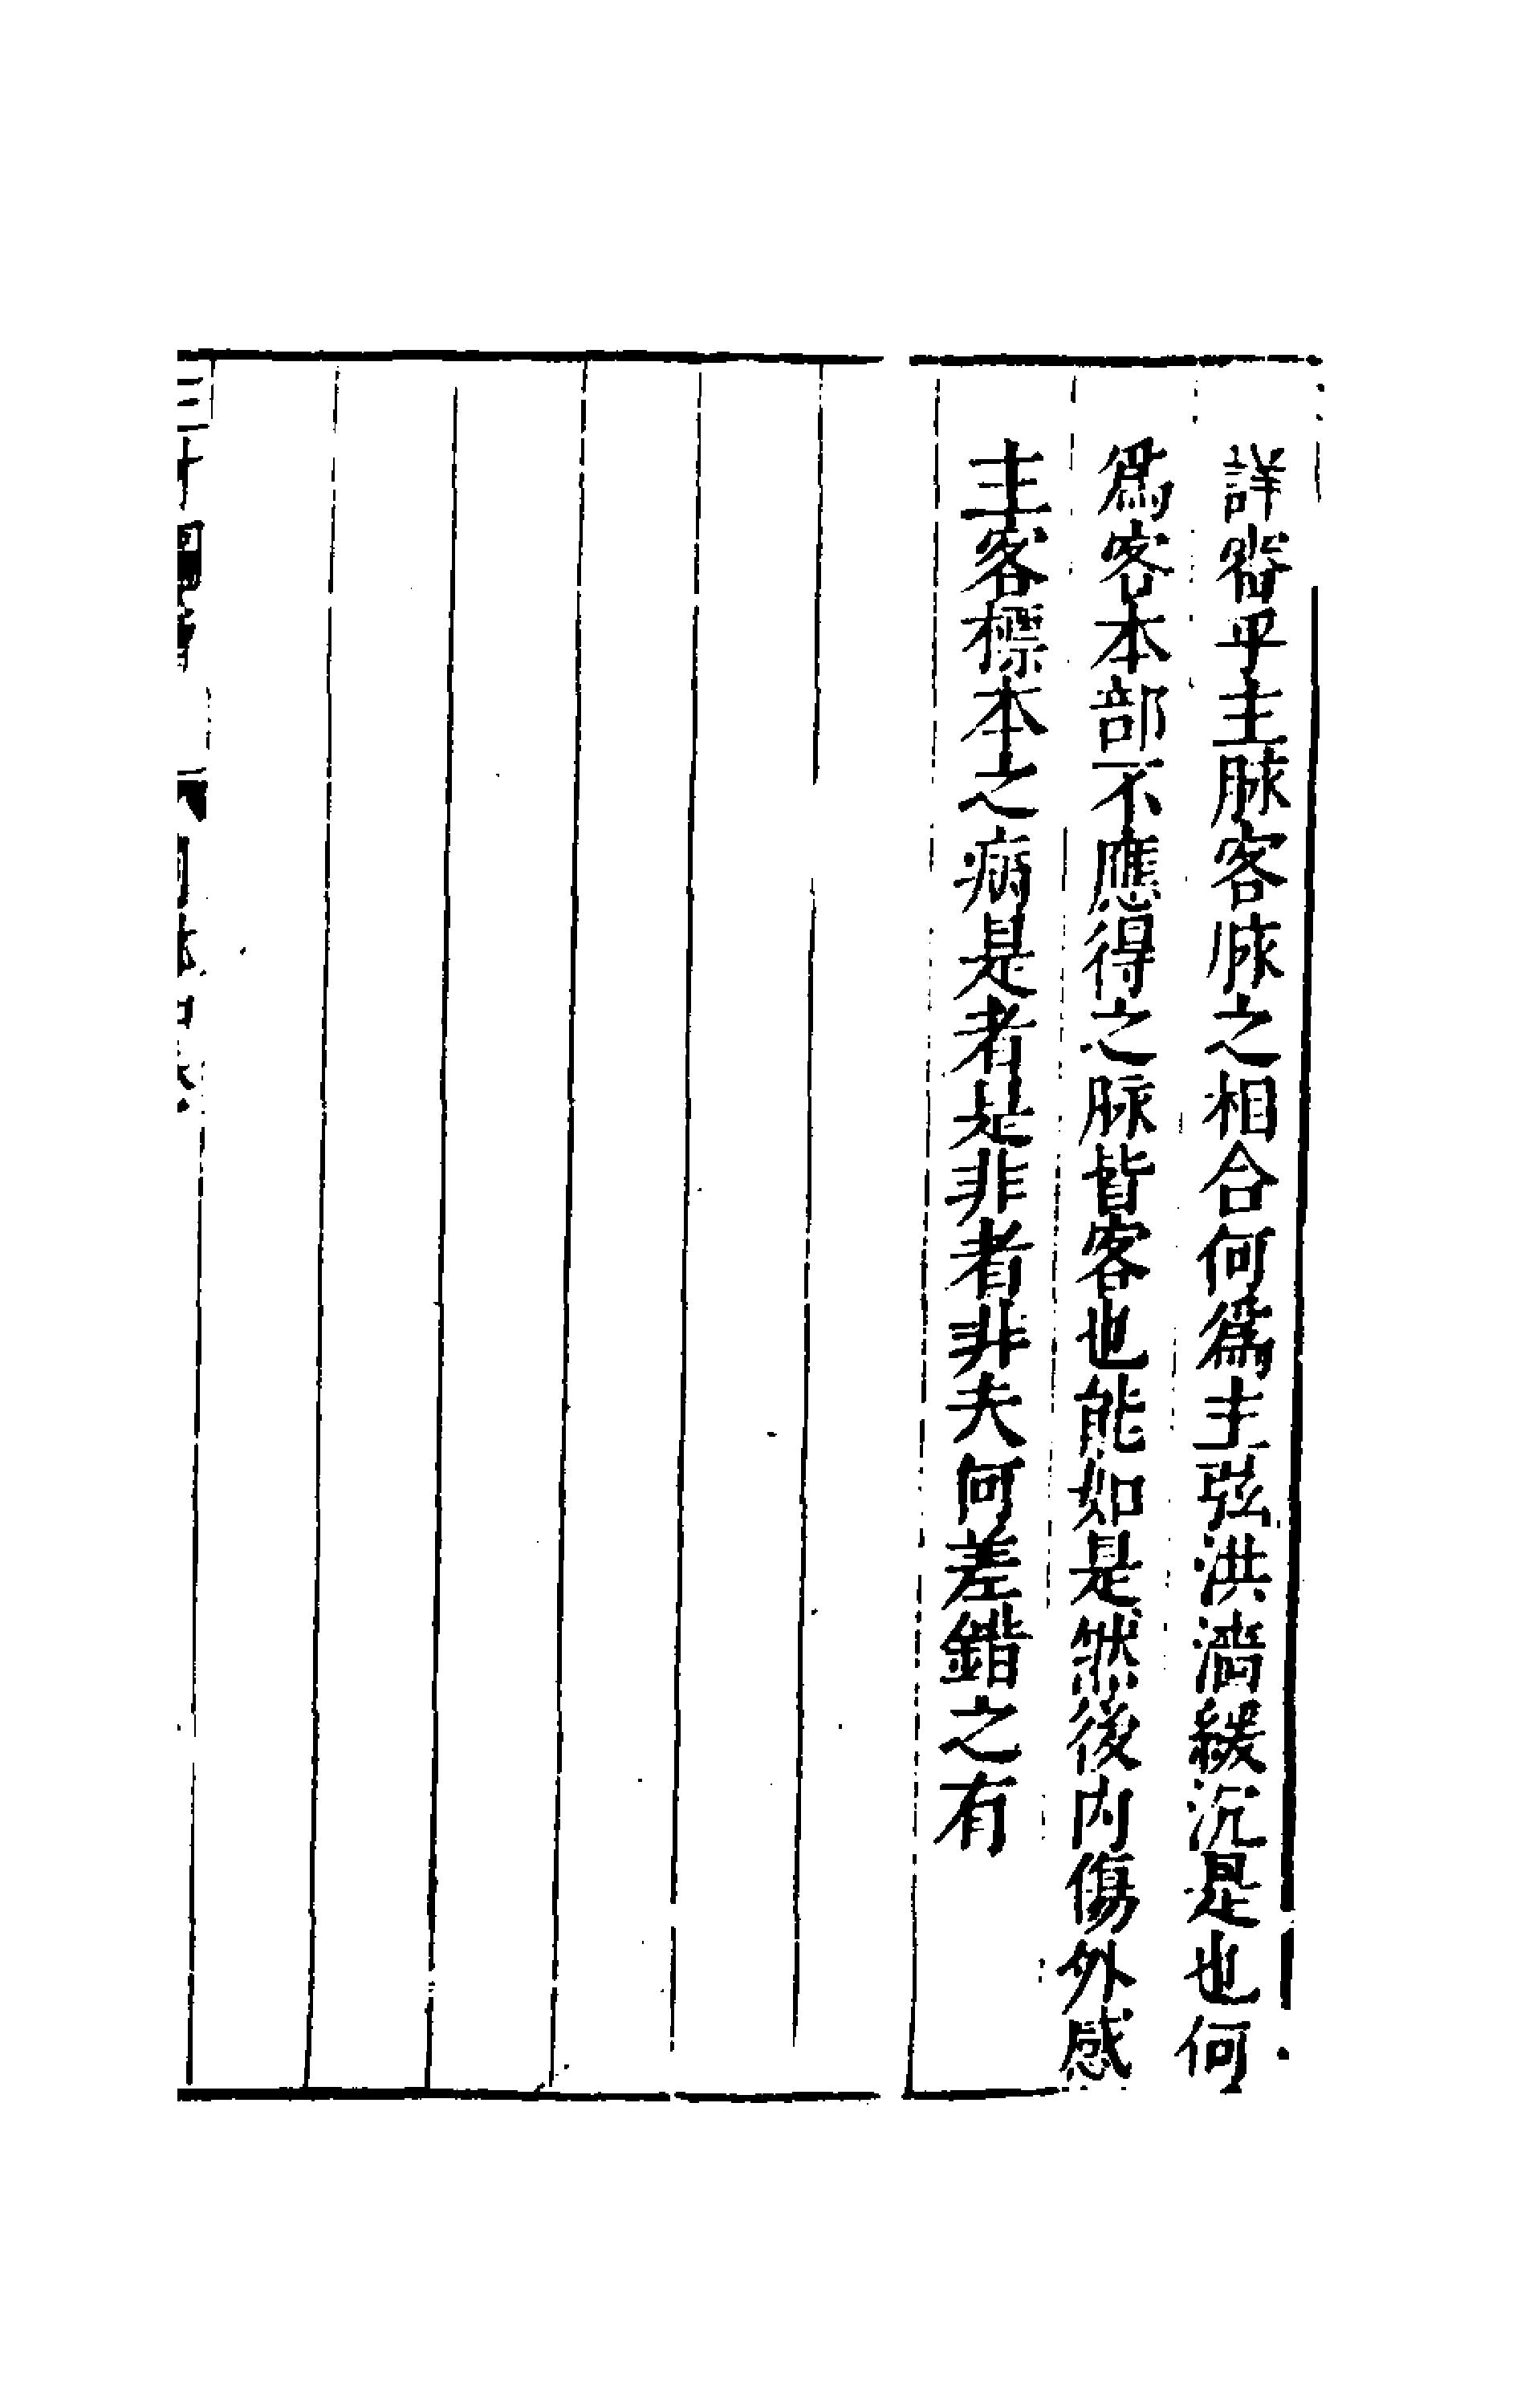 詳審乎主脉客脉之相合何爲主弦洪濇緩沉是也何
爲客本部不應得之脉皆客也能如是然後内傷外感
主客標本之病是者是非者非夫何差錯之有